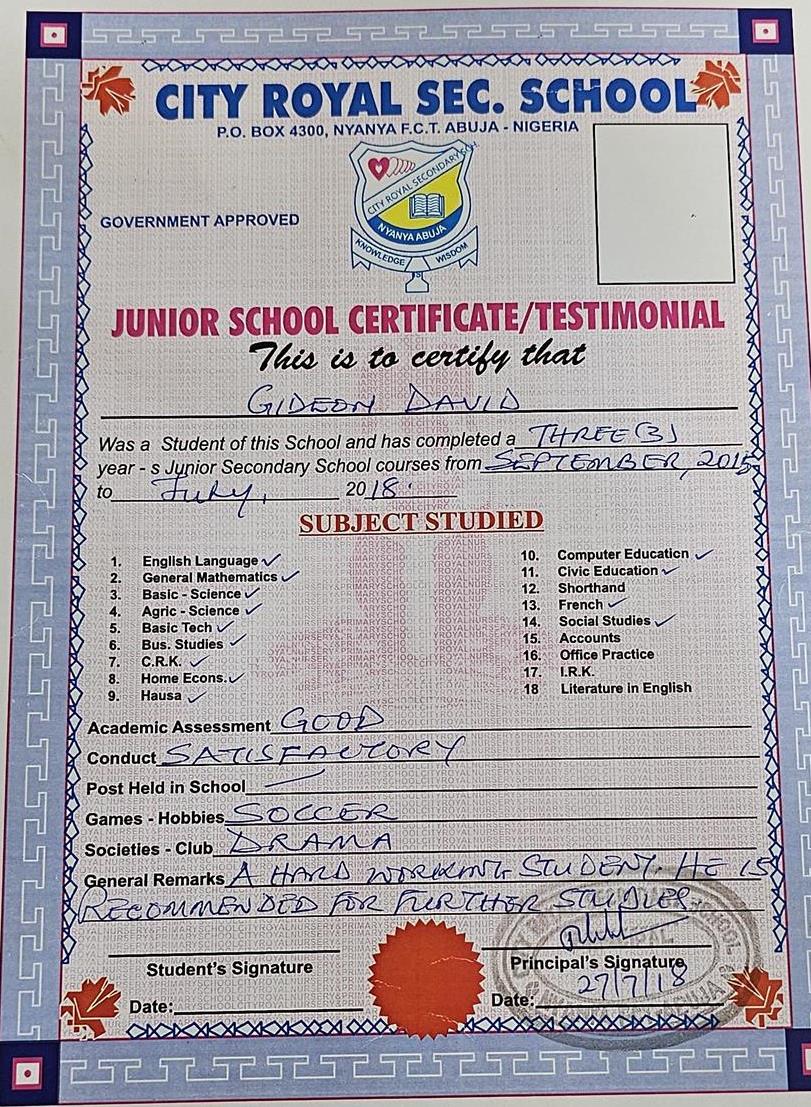 CITY ROYAL SEC. SCHOOL
P.O. BOX 4300, NYANYA F.C.T. ABUJA - NIGERIA
GOVERNMENT APPROVED
CITY ROYAL SECONDARY SCH
NYANYA ABUJA
KNOWLEDGE IS WISDOM
JUNIOR SCHOOL CERTIFICATE/TESTIMONIAL
This is to certify that
GIDEON DAVID
Was a Student of this School and has completed a THREE (3)
year - s Junior Secondary School courses from SEPTEMBER, 2015
to July, 2018.
SUBJECT STUDIED
1. English Language ✓
2. General Mathematics ✓
3. Basic - Science ✓
4. Agric - Science ✓
5. Basic Tech ✓
6. Bus. Studies ✓
7. C.R.K. ✓
8. Home Econs. ✓
9. Hausa ✓
10. Computer Education ✓
11. Civic Education ✓
12. Shorthand
13. French ✓
14. Social Studies ✓
15. Accounts
16. Office Practice
17. I.R.K.
18 Literature in English
Academic Assessment GOOD
Conduct SATISFACTORY
Post Held in School —
Games - Hobbies SOCCER
Societies - Club DRAMA
General Remarks A HARD WORKING STUDENT. HE IS
RECOMMENDED FOR FURTHER STUDIES
Student's Signature
Date:
Principal's Signature
Date: 27/7/18